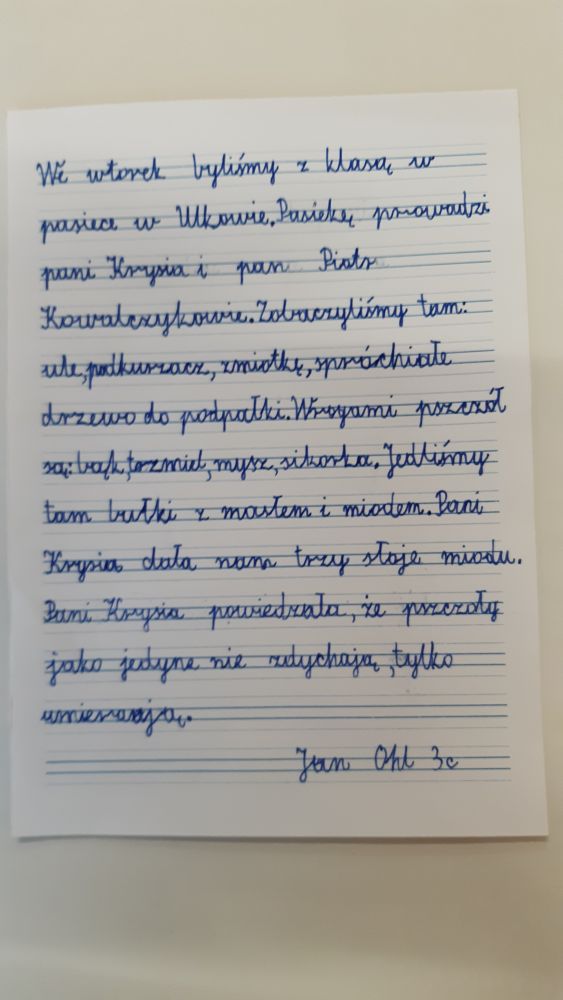 We wtorek byliśmy z klasą w
pasiece w Ulkowie. Pasiekę prowadzi
pani Krysia i pan Piotr
Kowalczykowie. Zobaczyliśmy tam:
ule, podkurzacz, zmiotkę, spróchiałe
drzewo do podpałki. Wrogami pszczół
są: bąk, trzmiel, mysz, sikorka. Jedliśmy
tam bułki z masłem i miodem. Pani
Krysia dała nam trzy słoje miodu.
Pani Krysia powiedziała, że pszczoły
jako jedyne nie zdychają, tylko
umierają.
Jan Ohl 3c